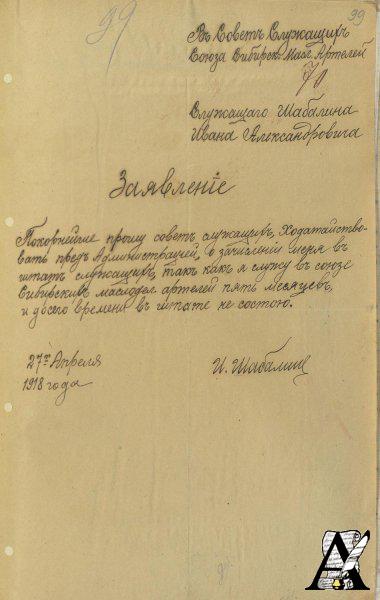 99
39
Въ Совѣтъ Служащихъ
Союза Сибирск. Масл. Артелей
70
Служащаго Шабалина
Ивана Александровича
Заявленіе
Покорнейше прошу советъ служащихъ, Ходатайство-
вать предъ Администрацией, о зачислении меня въ
штатъ служащихъ, такъ какъ я служу въ союзе
Сибирскихъ маслодел. артелей пять месяцевъ,
и до сего времени въ штате не состою.
27го Апреля
1918 года
И. Шабалинъ
А